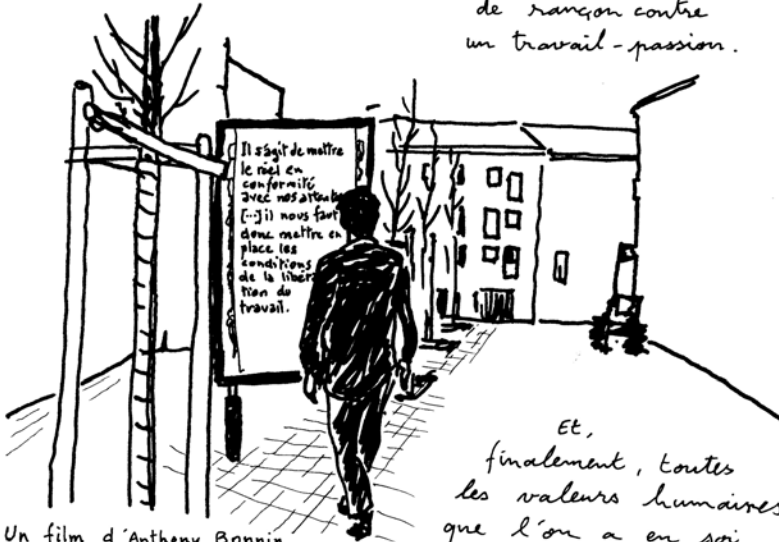 de rançon contre
un travail-passion.
Il s'agit de mettre
le réel en
conformité
avec nos attentes
[...] il nous faut
donc mettre en
place les
conditions
de la libéra
tion du
travail.
Et,
finalement, toutes
les valeurs humaines
que l'on a en soi
Un film d'Anthony Bonnin